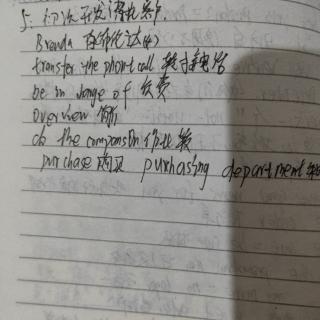 5. 初次开发潜在客户.
Brenda 布伦达(女)
transfer the phone call 转寸接电话
be in change of 负责
overview 简介
do the comparison 作比较
purchase 购买 purhasing department